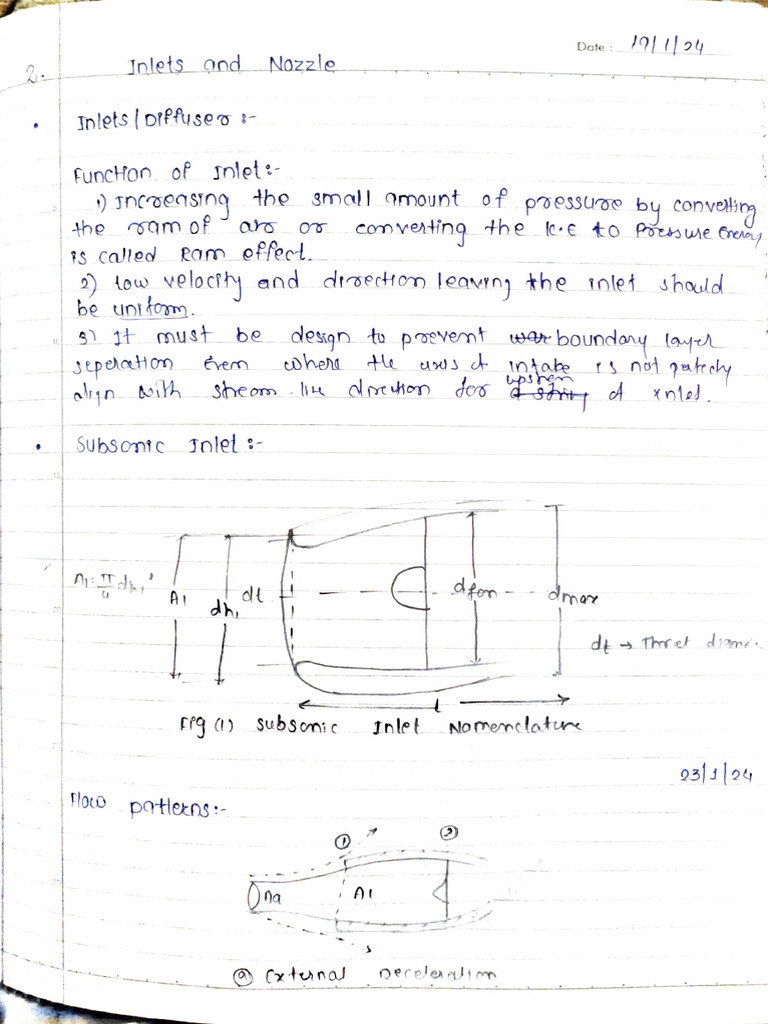 Date : 19/1/24
2. Inlets and Nozzle
• Inlets/Diffuser :-
Function of Inlet:-
1) Increasing the small amount of pressure by converting
the ram of air or converting the K.E to Pressure Energy
is called Ram effect.
2) low velocity and direction leaving the inlet should
be uniform.
3) It must be design to prevent boundary layer
seperation Even where the axis of intake is not perfectly
align with stream line direction for of inlet.
• Subsonic Inlet :-
A1 = π/4 dh1²
A1
dh1
dt
dfan
dmax
dt → Throt
l
Fig (1) Subsonic Inlet Nomenclature
23/1/24
Flow patterns:-
① ②
A1
ⓐ External Deceleration